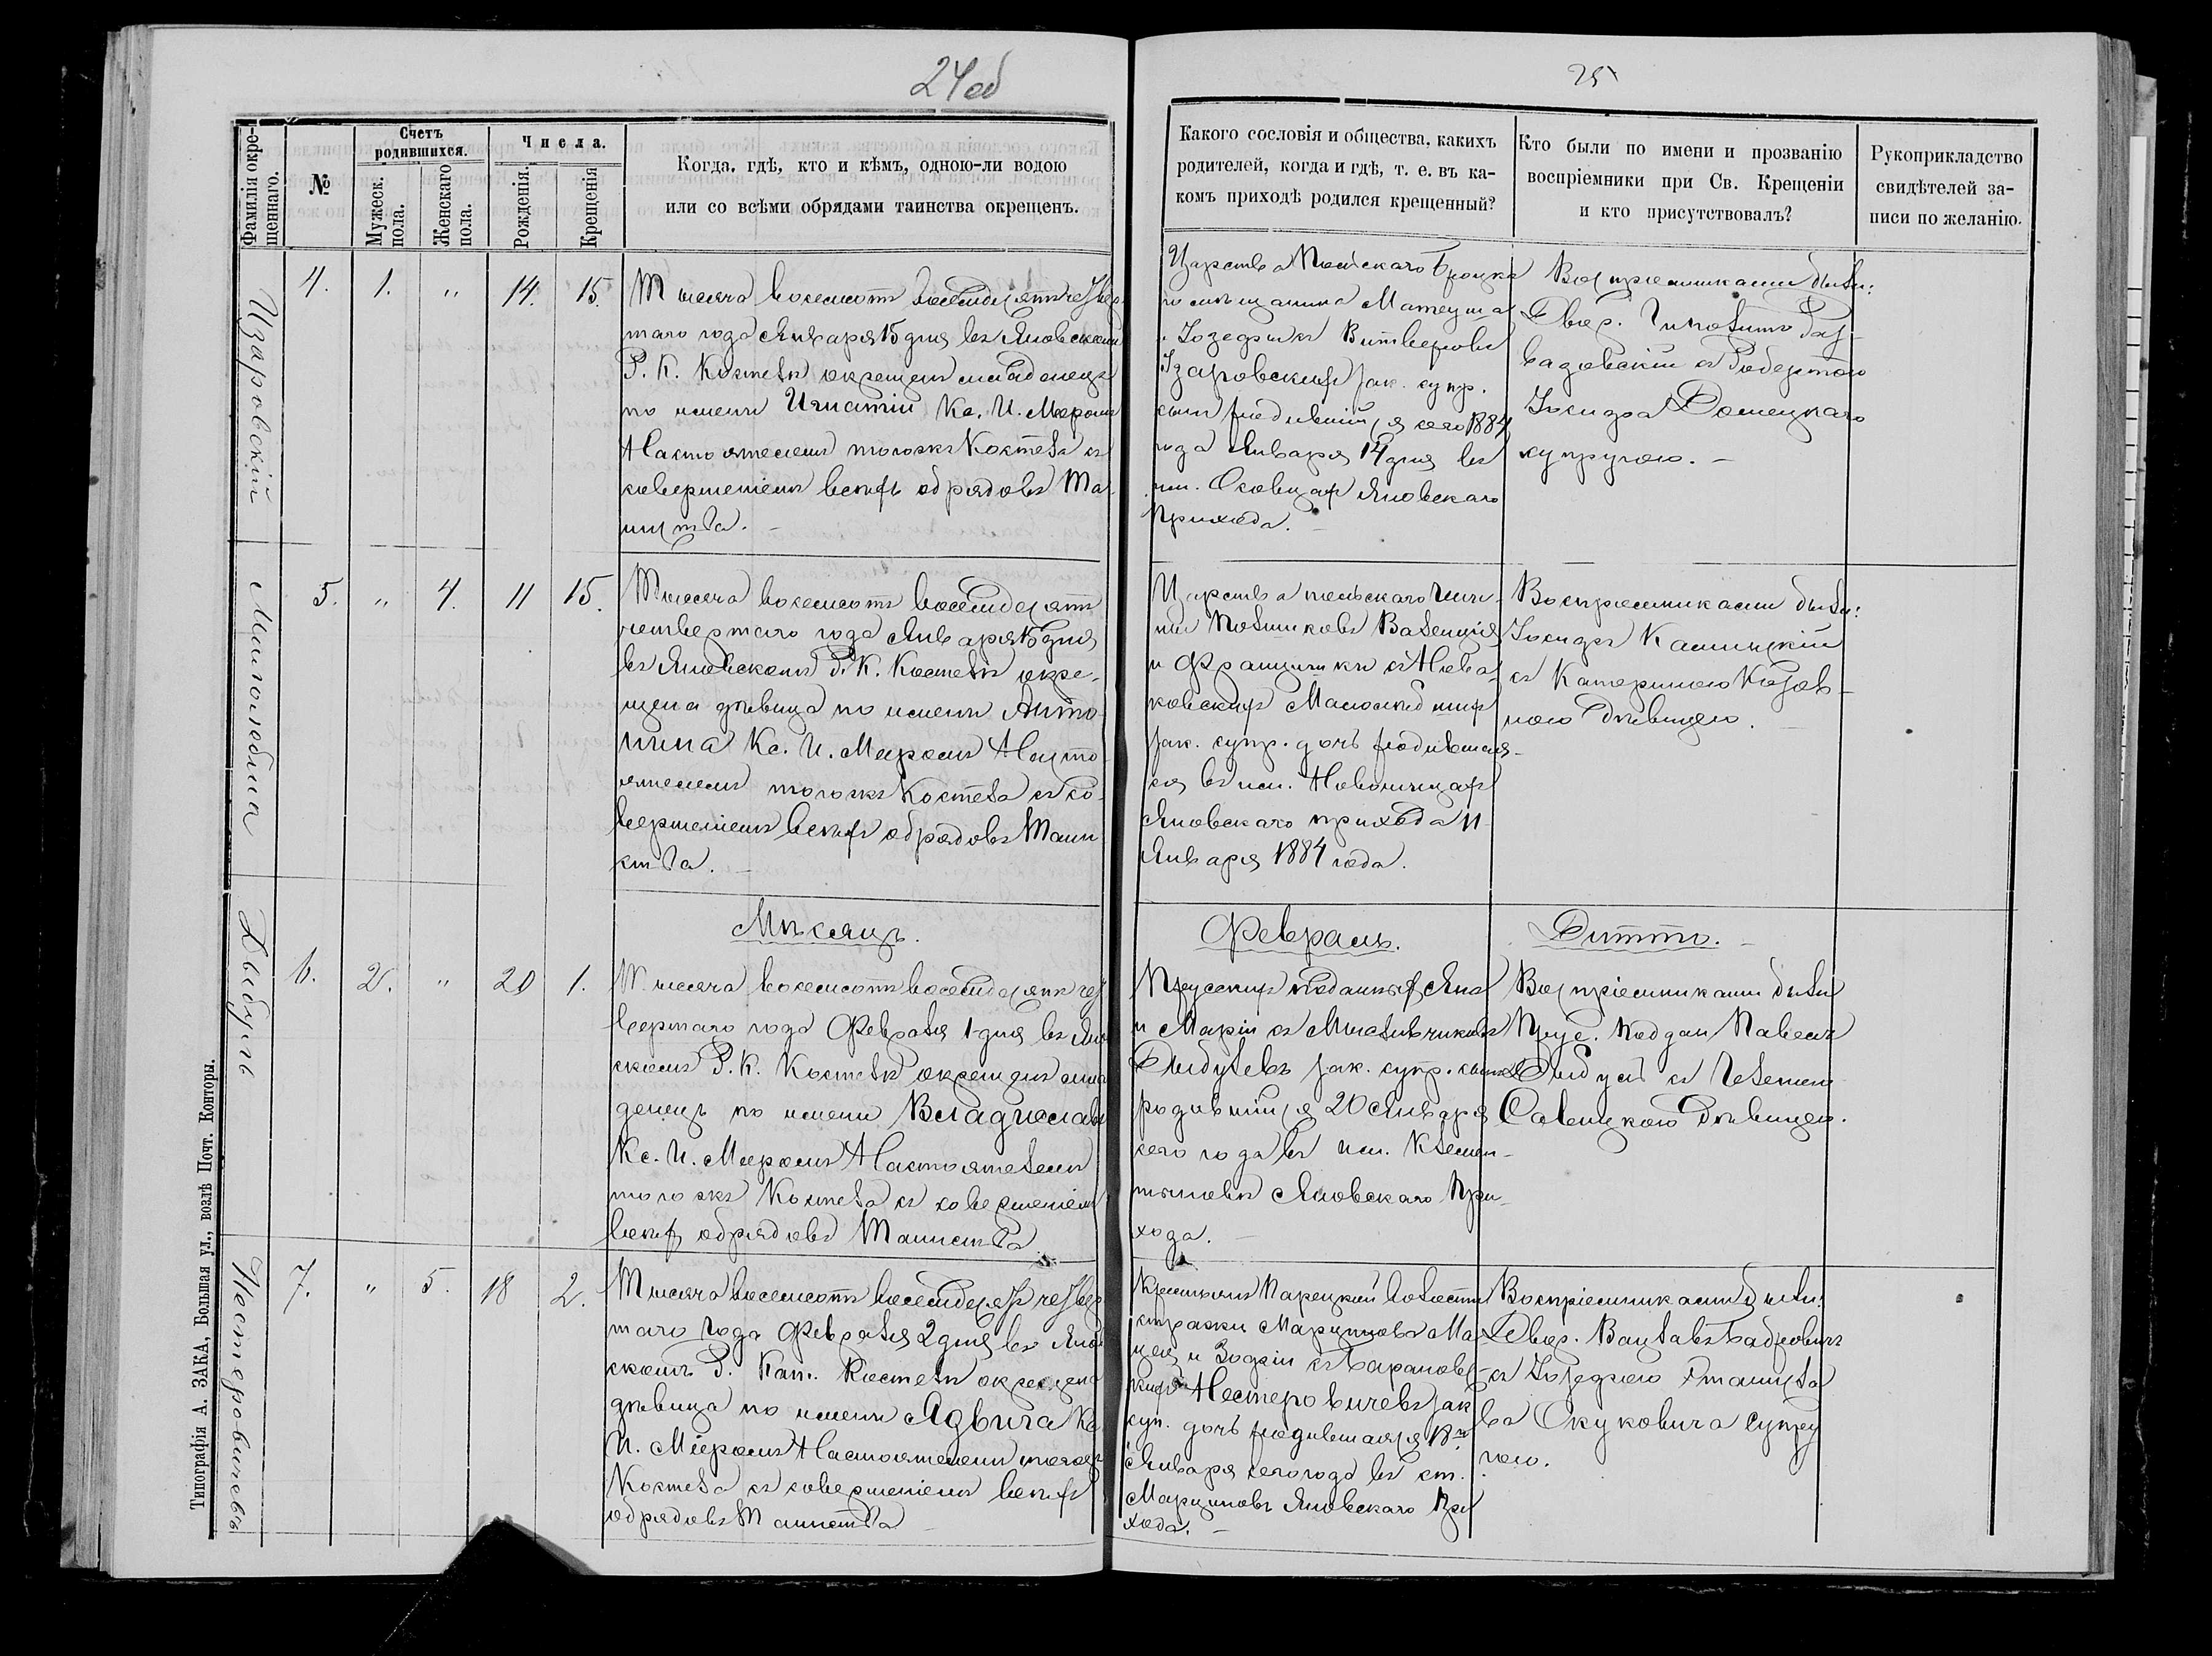 24 об
Фамилія окре-
щеннаго.
№
Счетъ
родившихся.
Мужеск.
пола.
Женскаго
пола.
Числа.
Рожденія.
Крещенія
Когда, гдѣ, кто и кѣмъ, одною-ли водою
или со всѣми обрядами таинства окрещенъ.
Изаровскій
4. 1. „ 14. 15.
Тысяча восемсотъ восемдесятъ четвер
таго года Января 15 дня въ Яновскомъ
Р. К. Костелѣ окрещенъ младенецъ
по имени Игнатій Кс. И. Мѣромъ
Настоятелемъ тогожъ Костела съ
совершеніемъ всѣхъ обрядовъ Та
инства.
Милолюбша
5. „ 4. 11 15.
Тысяча восемсотъ восемдесятъ
четвертаго года Января 15 дня
въ Яновскомъ Р. К. Костелѣ окре-
щена дѣвица по имени Анто
нина Кс. И. Мѣромъ Насто
ятелемъ тогожъ Костела съ со-
вершеніемъ всѣхъ обрядовъ Таин
ства.
Мѣсяцъ.
Дыбуль
6. 2. „ 20 1.
Тысяча восемсотъ восемдесятъ чет
вертаго года Февраля 1 дня въ Яно
скомъ Р. К. Костелѣ окрещенъ мла
денецъ по имени Владиславъ
Кс. И. Мѣромъ Настоятелемъ
тогожъ Костела съ совершеніемъ
всѣхъ обрядовъ Таинства
Нестеровичевъ
7. „ 5. 18 2.
Тысяча восемсотъ восемдесятъ четвер
таго года Февраля 2 дня въ Янов
скомъ Р. Кат. Костелѣ окрещена
дѣвица по имени Ядвига Кс
И. Мѣромъ Настоятелемъ тогожъ
Костела съ совершеніемъ всѣхъ
обрядовъ Таинства
Типографія А. ЗАКА, Большая ул., возлѣ Почт. Конторы.
25
Какого сословія и общества, какихъ
родителей, когда и гдѣ, т. е. въ ка-
комъ приходѣ родился крещенный?
Кто были по имени и прозванію
воспріемники при Св. Крещеніи
и кто присутствовалъ?
Рукоприкладство
свидѣтелей за-
писи по желанію.
Царства Польскаго
мѣщанина Матеуша
и Іозефы съ Витверовъ
Изаровскихъ зак. супр.
сынъ родившійся сего 1884
года Января 14 дня въ
им. Осовцахъ Яновскаго
прихода.
Воспріемниками были:
Двор. Ипполитъ
вадовскій съ Робертою
Іосифа Домецкаго
супругою.
Царства польскаго
Валенція
и Францишки съ Нова-
ковскихъ
зак. супр. дочь родившая-
ся въ им. Новоличцахъ
Яновскаго прихода 11
Января 1884 года.
Воспріемниками были:
Іосифъ Камицкій
съ Катериною
ною дѣвицею.
Февраль.
Дитто.
Прусскихъ подданныхъ Яна
и Маріи съ Мысливчиковъ
Дыбулевъ зак. супр. сынъ
родившійся 20 Января
сего года въ им. Клемен-
тыновѣ Яновскаго При-
хода.
Воспріемниками были
Прус. Поддан Павелъ
Дыбуль съ
Савицкою дѣвицею.
Крестьянъ Парецкой волости
стражи Марциновъ Ма
и Зофіи съ Баранов-
скихъ Нестеровичевъ зак
суп. дочь родившаяся 18го
Января сего года въ ст.
Марциновъ Яновскаго При
хода.
Воспріемниками были:
Двор. Вацлавъ
съ Іозефою Станисла
ва Окуковича супру
гою.